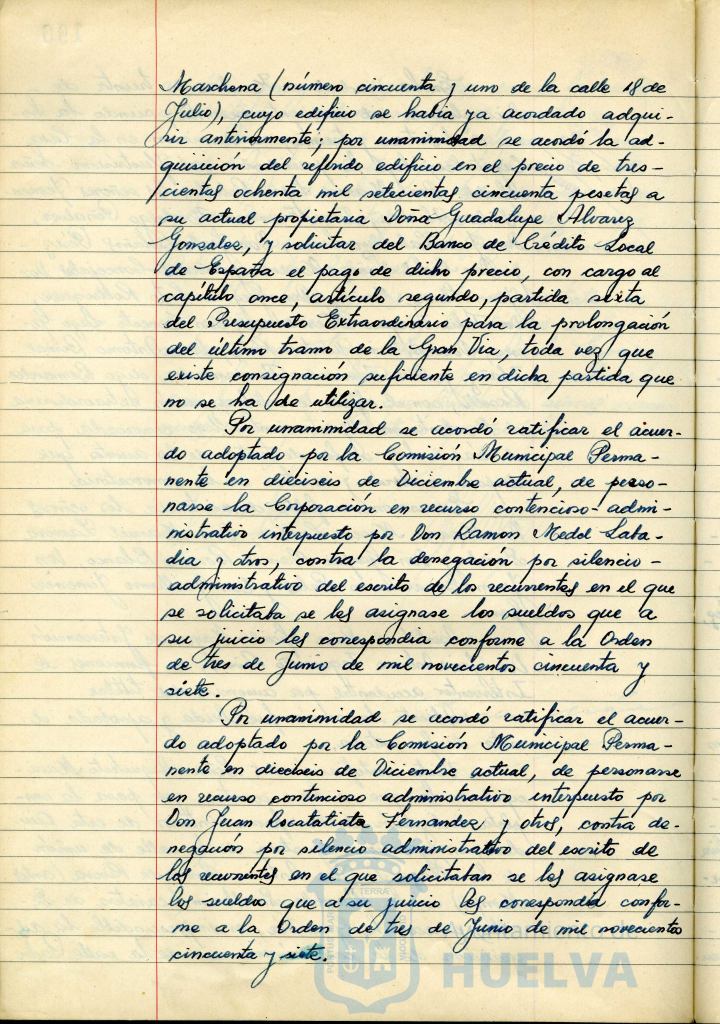 Marchena (número cincuenta y uno de la calle 18 de
Julio), cuyo edificio se habia ya acordado adqui-
rir anteriormente; por unanimidad se acordó la ad-
quisición del referido edificio en el precio de tres-
cientas ochenta mil setecientas cincuenta pesetas a
su actual propietaria Doña Guadalupe Alvarez
Gonzalez, y solicitar del Banco de Crédito Local
de España el pago de dicho precio, con cargo al
capítulo once, artículo segundo, partida sexta
del Presupuesto Extraordinario para la prolongación
del último tramo de la Gran Via, toda vez que
existe consignación suficiente en dicha partida que
no se ha de utilizar.
Por unanimidad se acordó ratificar el acuer-
do adoptado por la Comisión Municipal Perma-
nente en dieciseis de Diciembre actual, de perso-
narse la Corporación en recurso contencioso-admi-
nistrativo interpuesto por Don Ramon Medel Laba-
dia y otros, contra la denegación por silencio-
administrativo del escrito de los recurrentes en el que
se solicitaba se les asignase los sueldos que a
su juicio les correspondia conforme a la Orden
de tres de Junio de mil novecientos cincuenta y
siete.
Por unanimidad se acordó ratificar el acuer-
do adoptado por la Comisión Municipal Perma-
nente en dieciseis de Diciembre actual, de personarse
en recurso contencioso administrativo interpuesto por
Don Juan Fernandez y otros, contra de-
negación por silencio administrativo del escrito de
los recurrentes en el que solicitaban se les asignase
los sueldos que a su juicio les correspondia confor-
me a la Orden de tres de Junio de mil novecientos
cincuenta y siete.
HUELVA